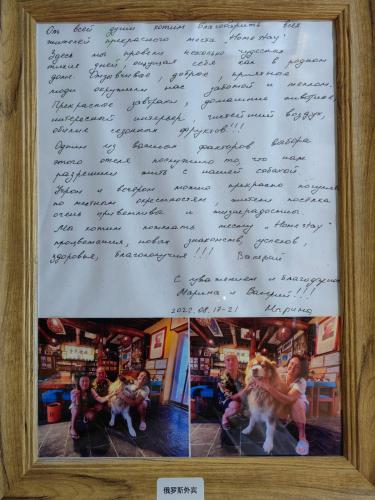 От всей души хотим благодарить всех
жителей прекрасного места "Home stay"
Здесь мы провели несколько чудесных
тихих дней, ощущая себя как в родном
доме. Отзывчивые, добрые, приятные
люди окружили нас заботой и теплом.
Прекрасное завтраки, домашние животные,
интересный интерьер, чистейший воздух,
обилие сезонных фруктов!!!
Одним из важных факторов выбора
этого отеля послужило то, что нам
разрешили жить с нашей собакой.
Утром и вечером можно прекрасно
по местным окрестностям, жители посёлка
очень приветливы и жизнерадостны.
Мы хотим пожелать месту "Home stay"
процветания, новых знакомств, успехов,
здоровья, благополучия!!! Валерий
С уважением и благодарностью
Марина и Валерий!!!
2022.08.17-21 Марина
俄罗斯外宾